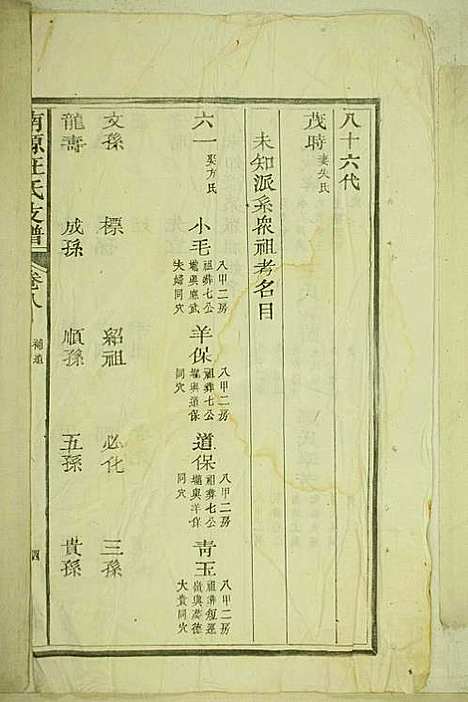 八十六代
茂時 妻失氏
未知派系眾祖考名目
六一 娶方氏
小毛 八甲二房祖葬七公壠與應武夫婦同穴
羊保 八甲二房祖葬七公壠與道保同穴
道保 八甲二房祖葬七公壠與羊保同穴
青玉 八甲二房祖葬短逕嶺與添德大貴同穴
文孫 標 紹祖 必化 三孫
龍壽 成孫 順孫 五孫 貴孫
南源汪氏支譜 卷八 補遺 四